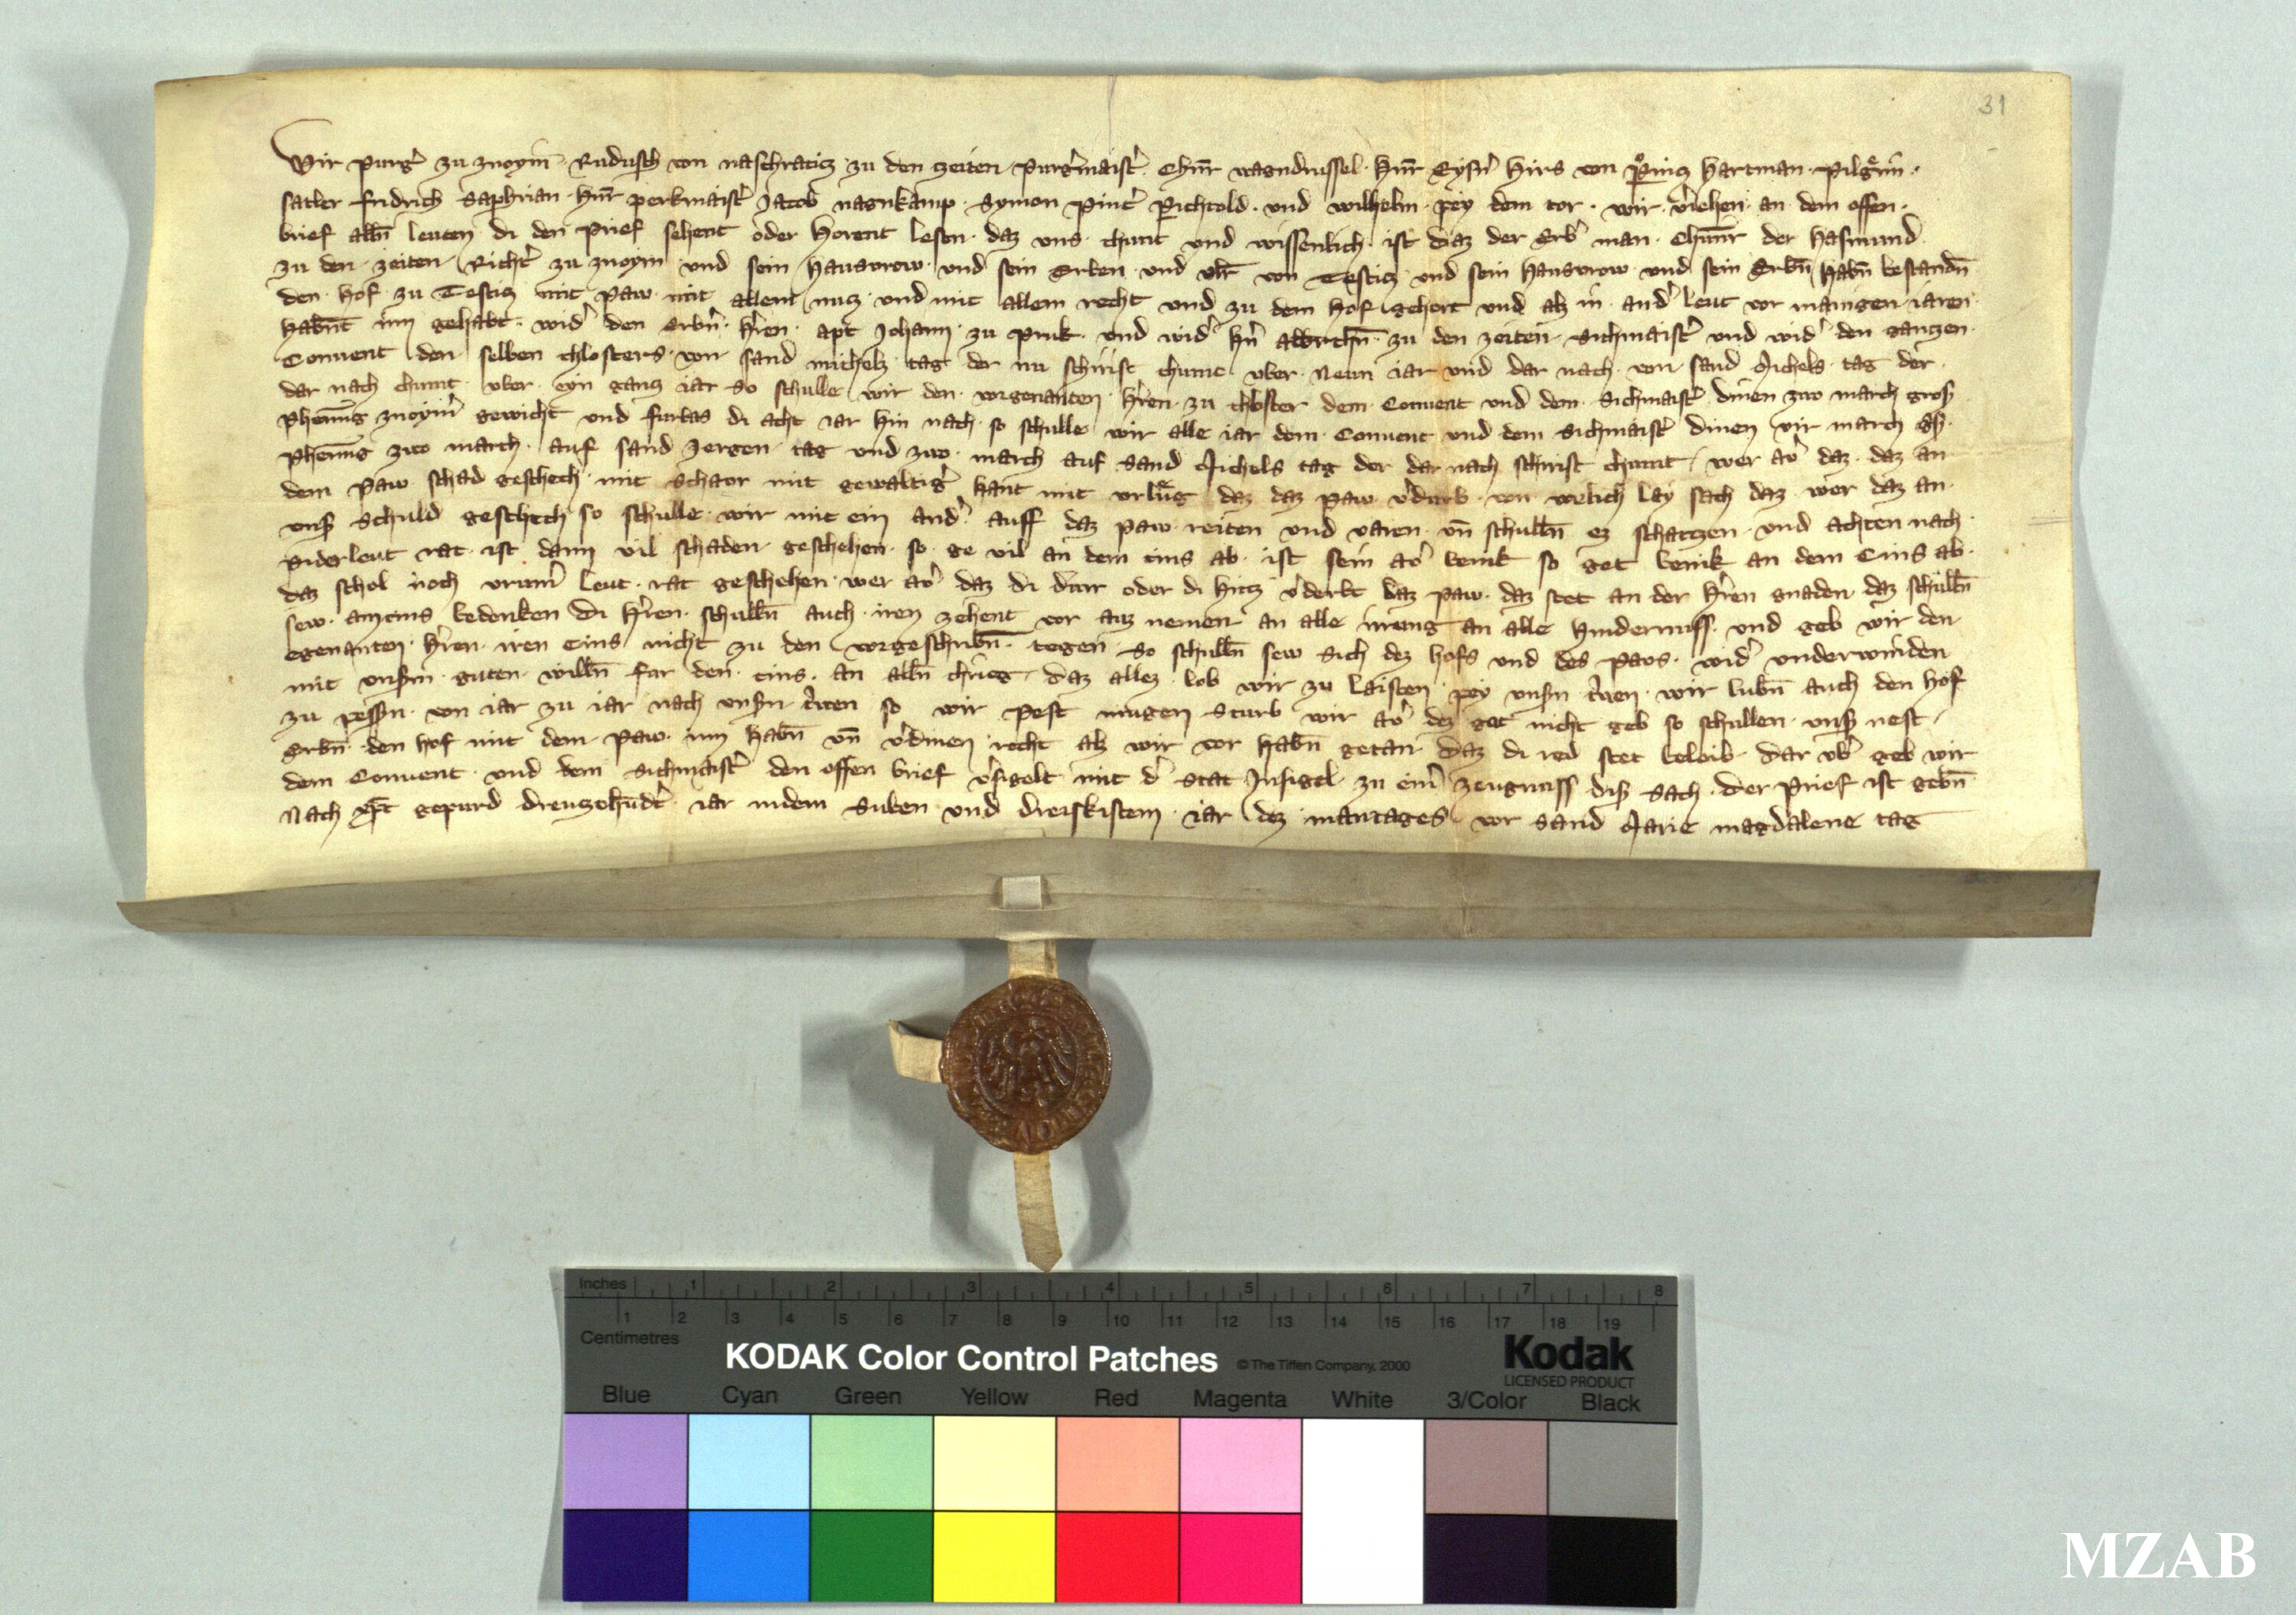 31
Wir purg̉ zu znoym Rudusch von naschraticz zu den zeiten purg̉maist̉ Chunr̄ wagndrussel hnr̄ Eysn̉ hirs von hartman pilgrim
satler fridrich Saphrian hnr̄ perkmaist̉ Jacob nagnkamp Symon pint̉ Pichtold und wilhelm pey dem tor wir v̉iehen an dem offen
brief alln̄ leuten di den prief sehent oder horent lesen daz uns chunt und wissenlich ist daz der Erb̉ man Chunr̄ der hasmund
zu den zeiten Richt̉ zu znoym und sein hausvrow und sein Erben und vlr̄ von Testicz und sein hausvrow und sein Erbn̄ habn̄ bestandn̄
den hof zu Testicz mit paw mit allem nucz und mit allem recht und zu dem hof gehort und alz in and̉ leut vor manigen iaren
habn̄t inn gehabt wid̉ den Erbn̉ h̉ren apt Johann zu pruk und wid̉ hn̉ zu den zeiten Sichmaist̉ und wid̉ den ganczen
Convent den selben chlosters von sand michelz tag der nu schirist chumt uber Neun iar und dar nach von sand Michels tag der
dar nach chumt uber eyn gancz iar so schulle wir den vorgenanten h̉ren zu chloster dem Convent und dem Sichmaist̉ dinen zwo march gros
phennig znoym̉ gewicht und furbas di acht iar hin nach so schulle wir alle iar dem Convent und dem Sichmaist̉ dinen vir march gs̉
phennig zwo march auf sand Jergen tag und zwo march auf Sand Michels tag der dar nach schirist chumt wer av̉ daz daz an
dem paw schad geschech mit Schaor mit gewaltig̉ hant mit urlug daz daz paw v̉durb von welich lay sach daz wer daz an
uns̉ Schuld geschech so schulle wir mit ein and̉ auff daz paw reiten und varen vn̄ schulln̄ ez schaczen und achten nach
piderleut rat ist dann vil schaden geschehen so ge vil an dem cins ab ist sein av̉ benik so get benik an dem Cins ab
daz schol noch vrum̉ leut rat geschehen wer av̉ daz di durr oder di hicz v̉derbt daz paw daz stet an der h̉ren gnaden daz schulln̄
sew amcins bedenken di h̉ren schulln̄ auch iren zehent vor auz nemen an alle irrung an alle hindernuss und geb wir den
egenanten h̉ren iren Cins nicht zu den vorgeschribn̄ tegen so schulln̄ sew sich dez hofs und des paws wid̉ underwinden
mit uns̉m guten willn̄ fur den cins an alln̄ chrieg daz allez lob wir zu laisten pey uns̉n t̉wen wir lubn̄ auch den hof
zu pess̉n von iar zu iar nach uns̉n t̉wen so wir pest mugen Sturb wir av̉ dez got nicht geb so schullen uns̉ nest
Erbn̄ den hof mit dem paw inn habn̄ vn̄ v̉dinen recht alz wir vor habn̄ getan daz di red stet beleib dar ub̉ geb wir
dem Convent und dem Sichmaist̉ den offen brief v̉sigelt mit d̉ stat Insigel zu eim̉ zeugnuss dis̉ sach der prief ist gebn̄
Nach xp̄t gepurd dreuzehūdt̉ iar in dem Siben und dreiskistem iar dez mantages vor sand Marie magdalene tag
Inches 1 2 3 4 5 6 7 8
Centimetres 1 2 3 4 5 6 7 8 9 10 11 12 13 14 15 16 17 18 19
KODAK Color Control Patches © The Tiffen Company, 2000 Kodak
LICENSED PRODUCT
Blue Cyan Green Yellow Red Magenta White 3/Color Black
MZAB